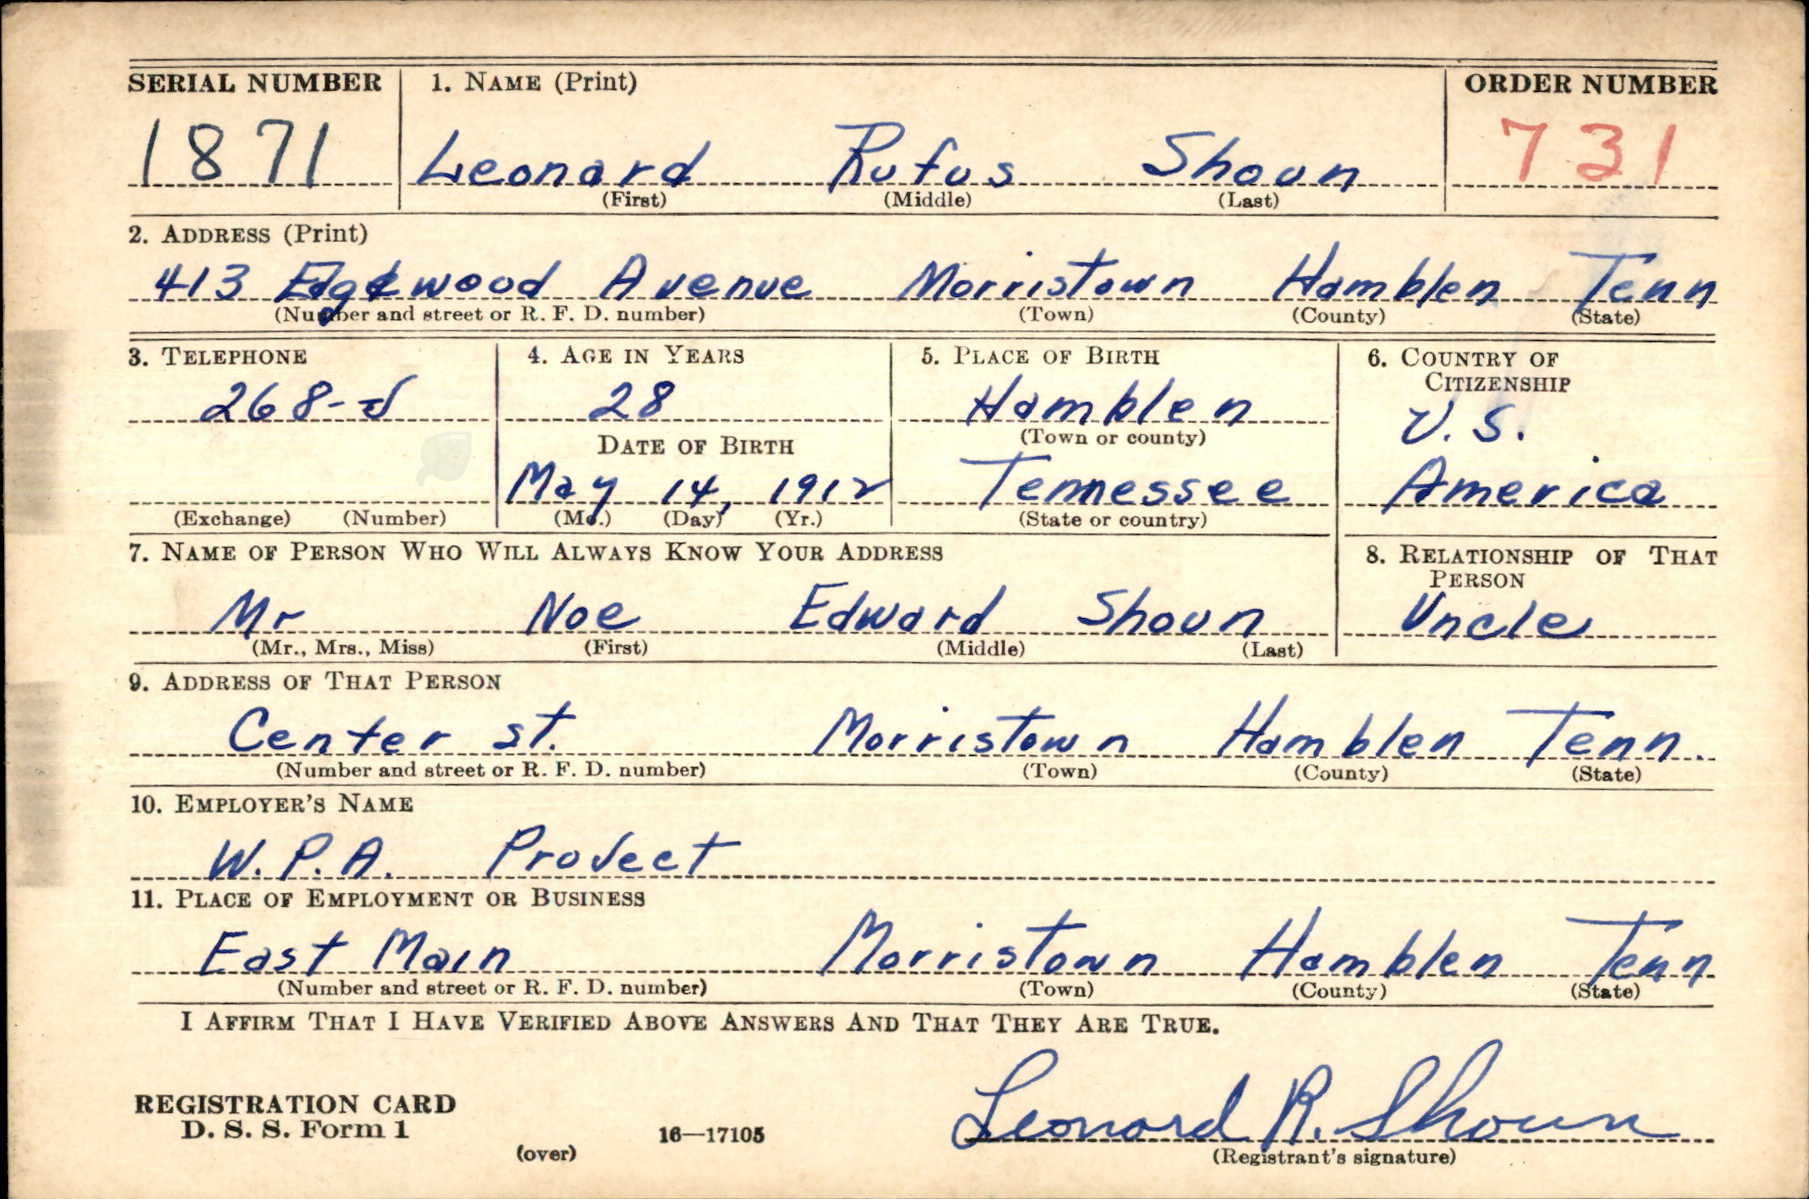 SERIAL NUMBER 1. NAME (Print) ORDER NUMBER
1871 Leonard Rufus Shoun 731
(First) (Middle) (Last)
2. ADDRESS (Print)
413 Edgewood Avenue Morristown Hamblen Tenn
(Number and street or R. F. D. number) (Town) (County) (State)
3. TELEPHONE 4. AGE IN YEARS 5. PLACE OF BIRTH 6. COUNTRY OF
CITIZENSHIP
268-J 28 Hamblen U.S.
DATE OF BIRTH (Town or county)
May 14, 1912 Tennessee America
(Exchange) (Number) (Mo.) (Day) (Yr.) (State or country)
7. NAME OF PERSON WHO WILL ALWAYS KNOW YOUR ADDRESS 8. RELATIONSHIP OF THAT
PERSON
Mr Noe Edward Shoun Uncle
(Mr., Mrs., Miss) (First) (Middle) (Last)
9. ADDRESS OF THAT PERSON
Center St. Morristown Hamblen Tenn.
(Number and street or R. F. D. number) (Town) (County) (State)
10. EMPLOYER'S NAME
W.P.A. Project
11. PLACE OF EMPLOYMENT OR BUSINESS
East Main Morristown Hamblen Tenn
(Number and street or R. F. D. number) (Town) (County) (State)
I AFFIRM THAT I HAVE VERIFIED ABOVE ANSWERS AND THAT THEY ARE TRUE.
REGISTRATION CARD
D. S. S. Form 1 Leonard R. Shoun
(over) 16—17105 (Registrant's signature)